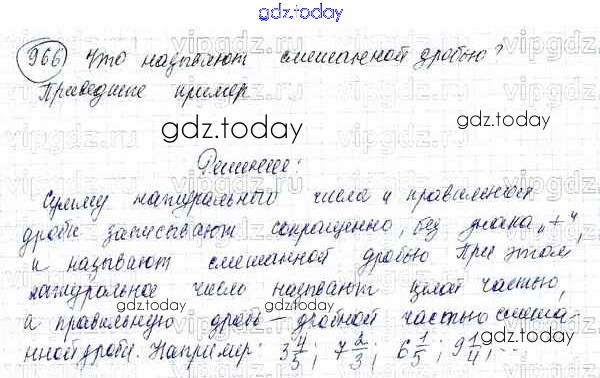 gdz.today
966 Что называют смешанной дробью?
Приведите пример
gdz.today
Решение:
Сумму натурального числа и правильной
дроби записывают сокращенно, без знака „+“,
и называют смешанной дробью При этом
натуральное число называют целой частью,
а правильную дробь – дробной частью смеша-
нной дроби. Например: 3 4/5; 7 2/3; 6 1/5; 9 1/4; ...
gdz.today
gdz.today
gdz.today